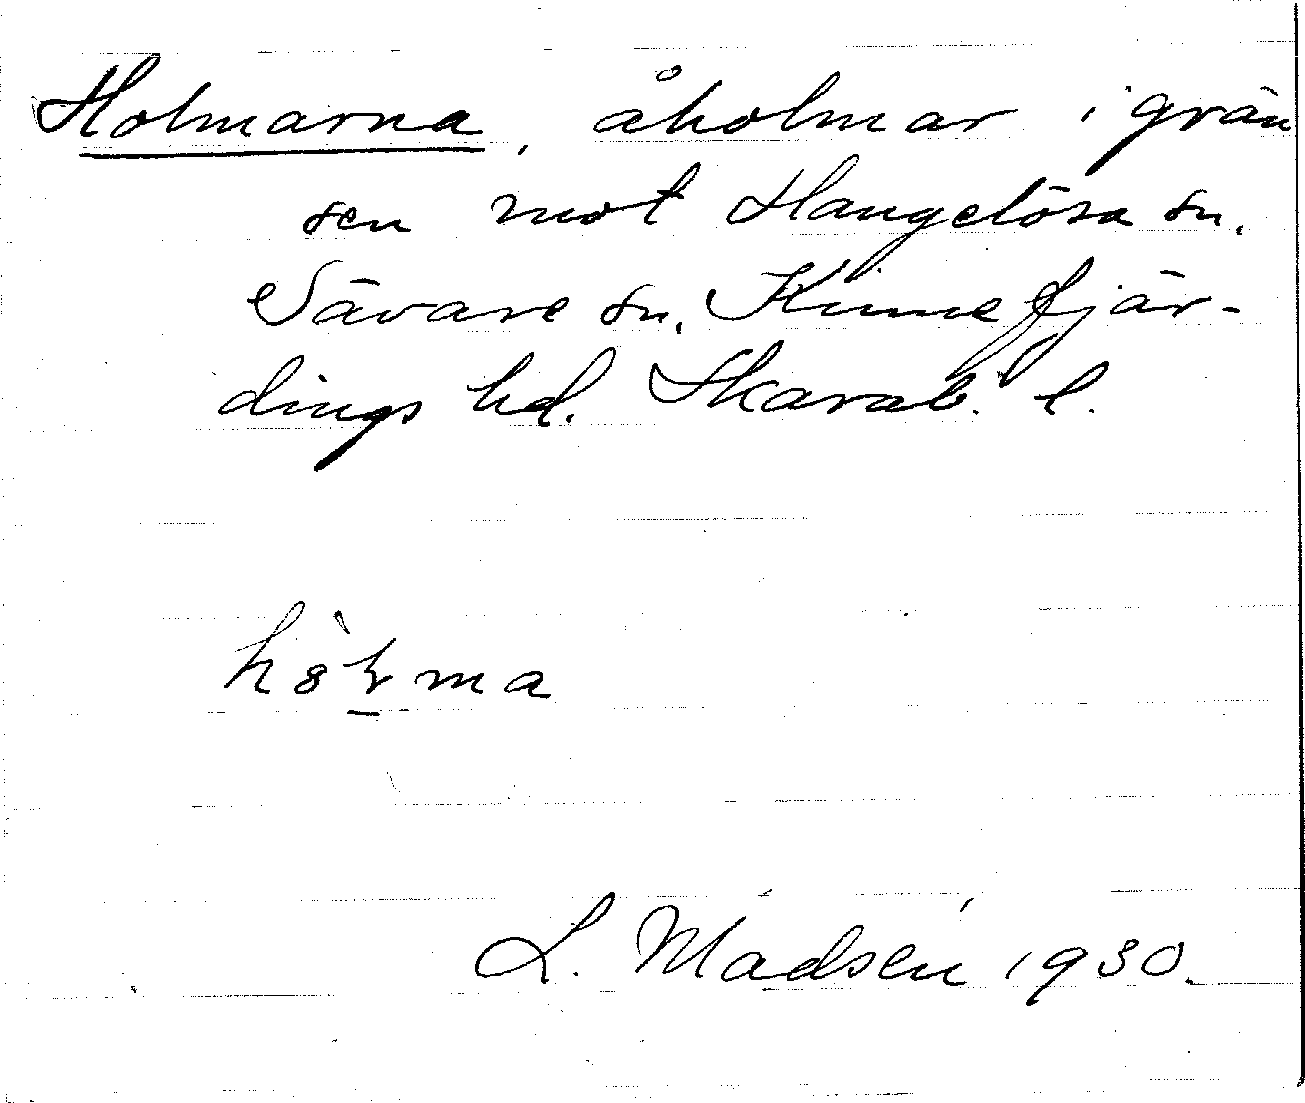 Holmarna, åholmar i grän
sen mot Hangelösa sn.
Sävare sn. Kinnefjär-
dings hd. Skarab. l.
L. Madsén 1930.